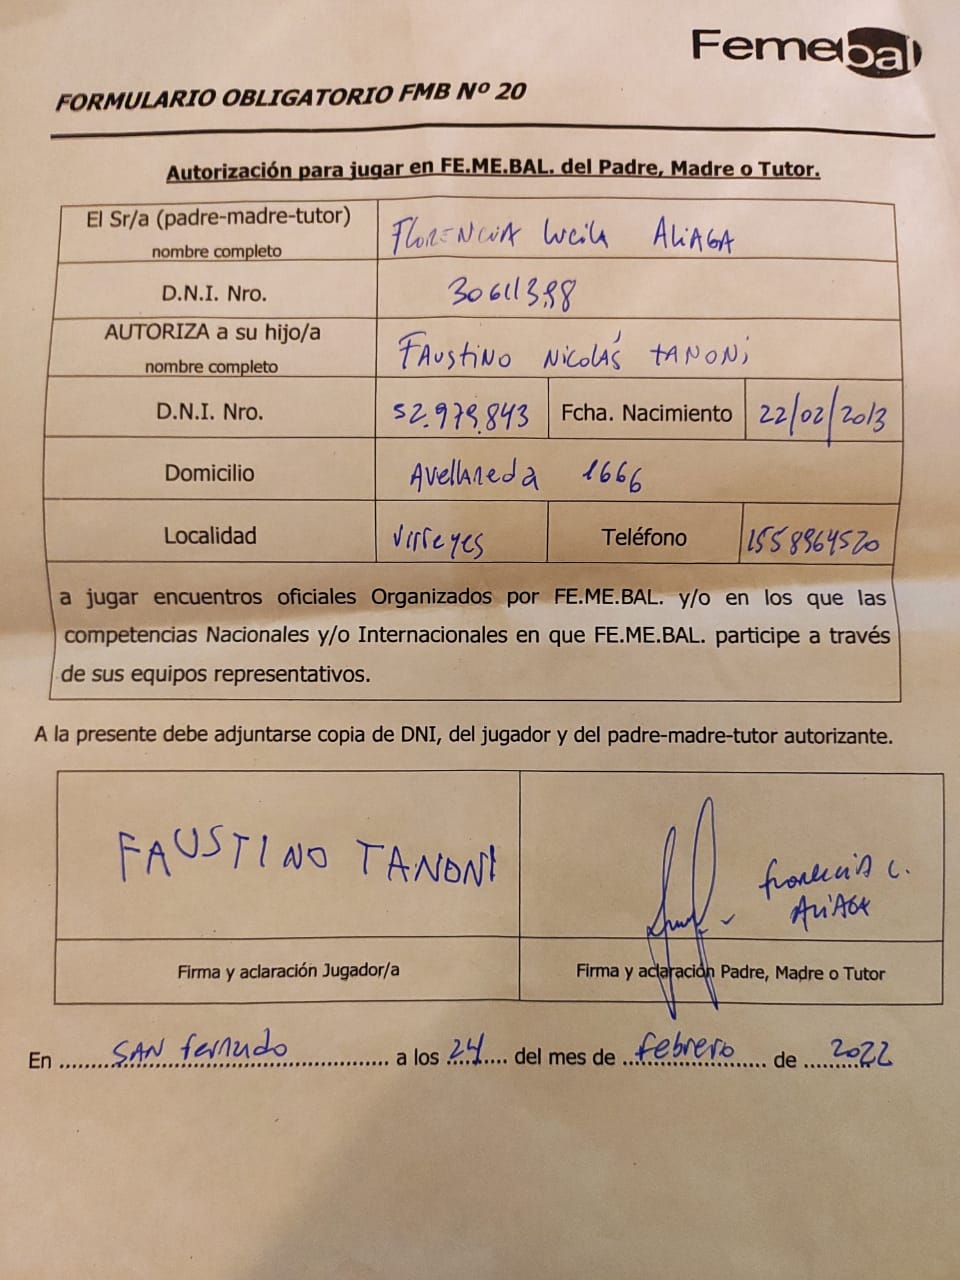 Femebal
FORMULARIO OBLIGATORIO FMB Nº 20
Autorización para jugar en FE.ME.BAL. del Padre, Madre o Tutor.
El Sr/a (padre-madre-tutor)
nombre completo
FLORENCIA Lucila ALIAGA
D.N.I. Nro.
30611398
AUTORIZA a su hijo/a
nombre completo
FAUSTINO NICOLÁS TANONI
D.N.I. Nro. 52.979.843 Fcha. Nacimiento 22/02/2013
Domicilio Avellaneda 1666
Localidad Virreyes Teléfono 1558964520
a jugar encuentros oficiales Organizados por FE.ME.BAL. y/o en los que las
competencias Nacionales y/o Internacionales en que FE.ME.BAL. participe a través
de sus equipos representativos.
A la presente debe adjuntarse copia de DNI, del jugador y del padre-madre-tutor autorizante.
FAUSTINO TANONI
Florencia L.
ALIAGA
Firma y aclaración Jugador/a
Firma y aclaración Padre, Madre o Tutor
En SAN Fernando a los 24 del mes de febrero de 2022